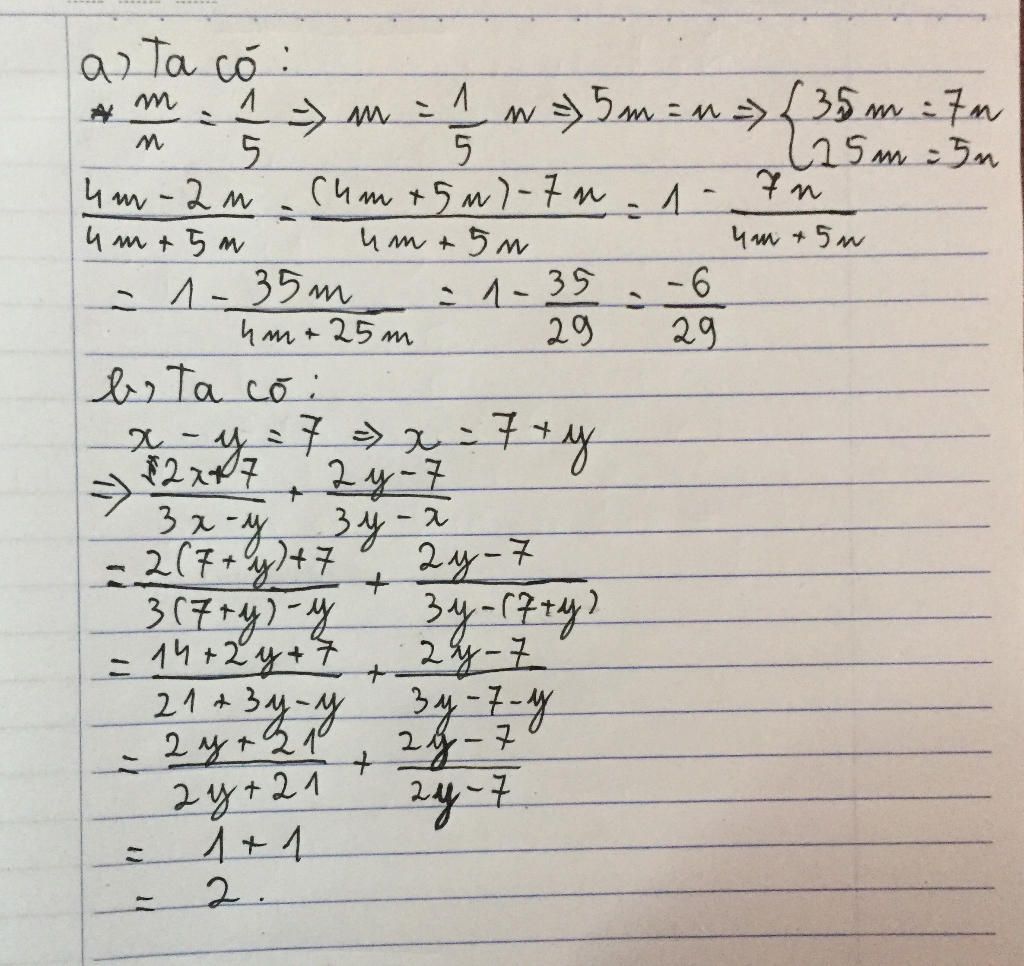 a) Ta có:
m/n = 1/5 ⇒ m = 1/5 n ⇒ 5m = n ⇒ { 35m = 7n
25m = 5n
(4m - 2n)/(4m + 5n) = ((4m + 5n) - 7n)/(4m + 5n) = 1 - 7n/(4m + 5n)
= 1 - 35m/(4m + 25m) = 1 - 35/29 = -6/29
b) Ta có:
x - y = 7 ⇒ x = 7 + y
⇒ (2x + 7)/(3x - y) + (2y - 7)/(3y - x)
= (2(7 + y) + 7)/(3(7 + y) - y) + (2y - 7)/(3y - (7 + y))
= (14 + 2y + 7)/(21 + 3y - y) + (2y - 7)/(3y - 7 - y)
= (2y + 21)/(2y + 21) + (2y - 7)/(2y - 7)
= 1 + 1
= 2.